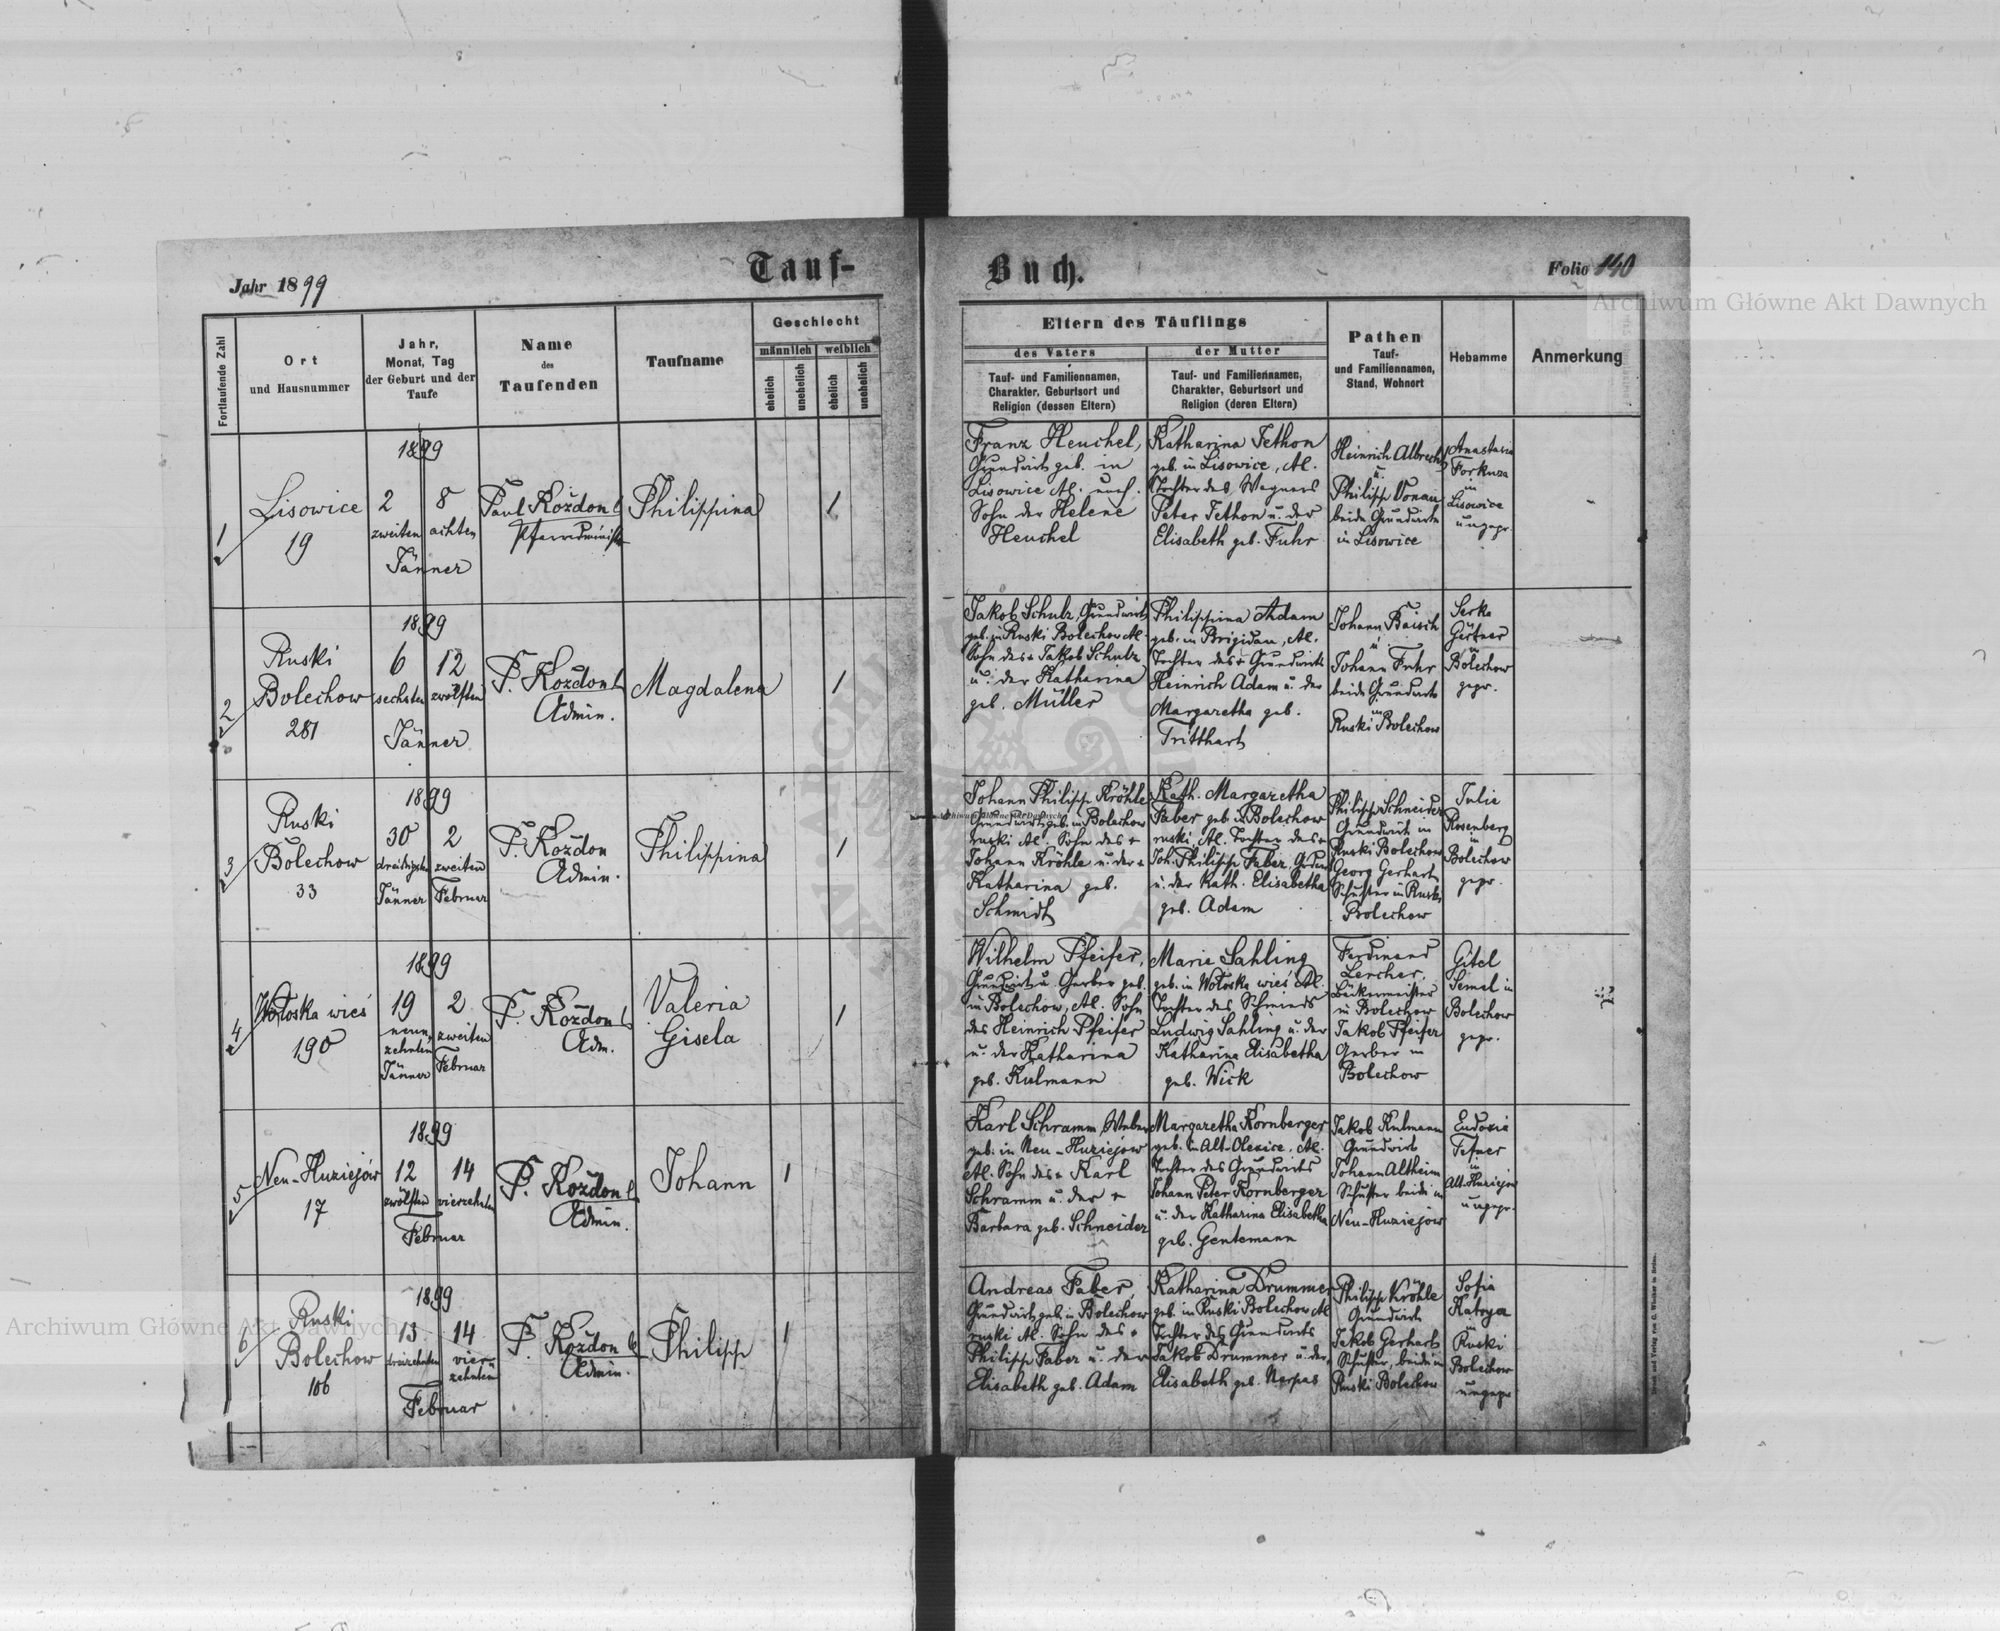 Jahr 1899
Tauf-
Buch.
Folio 140
Archiwum Główne Akt Dawnych
Fortlaufende Zahl
Ort
und Hausnummer
Jahr,
Monat, Tag
der Geburt und der
Taufe
Name
des
Taufenden
Taufname
Geschlecht
männlich
weiblich
ehelich
unehelich
ehelich
unehelich
Eltern des Täuflings
des Vaters
der Mutter
Tauf- und Familiennamen,
Charakter, Geburtsort und
Religion (dessen Eltern)
Tauf- und Familiennamen,
Charakter, Geburtsort und
Religion (deren Eltern)
Pathen
Tauf-
und Familiennamen,
Stand, Wohnort
Hebamme
Anmerkung
1
Lisowice
19
1899
2 8
zweiten achten
Jänner
Paul Kozdon
Philippina
1
Franz Heuchel,
Grundwirt geb. in
Lisowice Al. unehl.
Sohn der Helene
Heuchel
Katharina Tethon
geb. in Lisowice, Al.
Tochter des Wagners
Peter Tethon u. der
Elisabeth geb. Fuhr
Heinrich Albrecht
u.
Philipp Vonau
beide Grundwirte
in Lisowice
Anastasia
in
Lisowice
ungepr.
2
Ruski
Bolechow
281
1899
6 12
sechsten zwölften
Jänner
P. Kozdon
Admin.
Magdalena
1
Jakob Schulz, Grundwirt
geb. in Ruski Bolechow Al.
Sohn des + Jakob Schulz
u. der Katharina
geb. Müller
Philippina Adam
geb. in Brigidau, Al.
Tochter des + Grundwirts
Heinrich Adam u. der
Margaretha geb.
Tritthart
Johann Baisch
u.
Johann Fuhr
beide Grundwirte
in
Ruski Bolechow
Serke
Gärtner
in
Bolechow
gepr.
3
Ruski
Bolechow
33
1899
30 2
dreißigsten zweiten
Jänner Februar
P. Kozdon
Admin.
Philippina
1
Johann Philipp Kröhle
Grundwirt geb. in Bolechow
ruski Al. Sohn des +
Johann Kröhle u. der +
Katharina geb.
Schmidt
Kath. Margaretha
Faber geb. in Bolechow
ruski, Al. Tochter des +
Joh. Philipp Faber,
u. der Kath. Elisabetha
geb. Adam
Philipp Schneider
Grundwirt in
Ruski Bolechow
Georg Gerhart
Schuster in Ruski
Bolechow
Julie
Rosenberg
in
Bolechow
gepr.
Archiwum Główne Akt Dawnych
4
Wołoska wieś
190
1899
19 2
neun-
zehnten zweiten
Jänner Februar
P. Kozdon
Adm.
Valeria
Gisela
1
Wilhelm Pfeifer,
Grundwirt u. Gerber geb.
in Bolechow, Al. Sohn
des Heinrich Pfeifer
u. der Katharina
geb. Kulmann
Marie Sahling
geb. in Wołoska wieś Al.
Tochter des Schmieds
Ludwig Sahling u. der
Katharina Elisabetha
geb. Wick
Ferdinand
Lercher,
Bäckermeister
in Bolechow
Jakob Pfeifer
Gerber in
Bolechow
Gitel
Semel in
Bolechow
gepr.
5
Neu-Huziejów
17
1899
12 14
zwölften vierzehnten
Februar
P. Kozdon
Admin.
Johann
1
Karl Schramm, Weber
geb. in Neu-Huziejow
Al. Sohn des + Karl
Schramm u. der +
Barbara geb. Schneider
Margaretha Kornberger
geb. in Alt-Olesice, Al.
Tochter des Grundwirts
Johann Peter Kornberger
u. der Katharina Elisabetha
geb. Gentemann
Jakob Kulmann
Grundwirt
Johann Altheim
Schuster beide in
Neu-Huziejow
Eudoxia
Fetner
in
Alt-Huziejow
ungepr.
6
Ruski
Bolechow
106
1899
13 14
dreizehnten vier-
zehnten
Februar
P. Kozdon
Admin.
Philipp
1
Andreas Faber,
Grundwirt geb. in Bolechow
ruski Al. Sohn des +
Philipp Faber u. der
Elisabeth geb. Adam
Katharina Drummer
geb. in Ruski Bolechow Al.
Tochter des Grundwirts
Jakob Drummer u. der
Elisabeth geb. Nerpas
Philipp Kröhle
Grundwirt
Jakob Gerhart
Schuster, beide in
Ruski Bolechow
Sofia
in
Ruski
Bolechow
ungepr.
Archiwum Główne Akt Dawnych